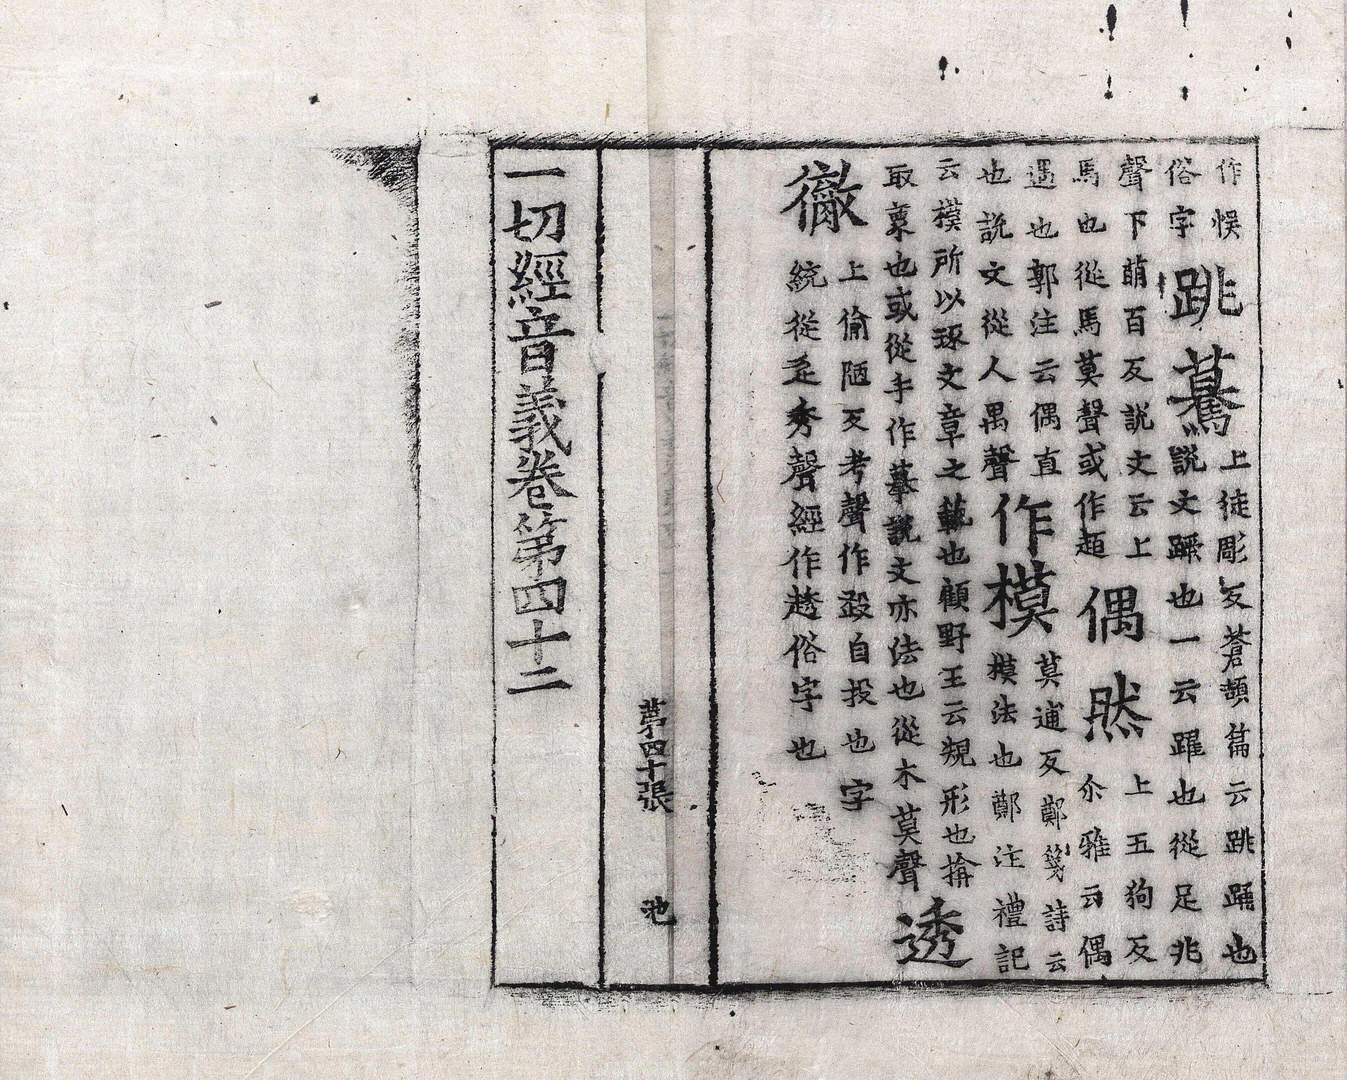 作悮
俗字
跳驀
上徒彫反蒼頡篇云跳踊也
說文蹶也一云躍也從足兆
聲下萠百反說文云上
馬也從馬莫聲或作趏
偶然
上五狗反
尒雅云偶
遇也郭注云偶直
也說文從人禺聲
作模
莫逋反鄭箋詩云
模法也鄭注禮記
云模所以琢文章之範也顧野王云規形也揜
取象也或從手作摹說文亦法也從木莫聲
透
徹
上偷陋反考聲作㲃自投也字
統從辵秀聲經作趎俗字也
第四十張
池
一切經音義卷第四十二